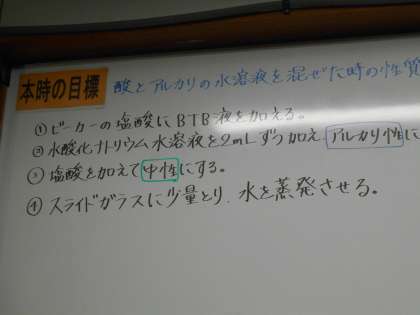 本時の目標 酸とアルカリの水溶液を混ぜた時の性質
① ビーカーの塩酸にBTB液を加える。
② 水酸化ナトリウム水溶液を2mLずつ加え、アルカリ性に
③ 塩酸を加えて中性にする。
④ スライドガラスに少量とり、水を蒸発させる。